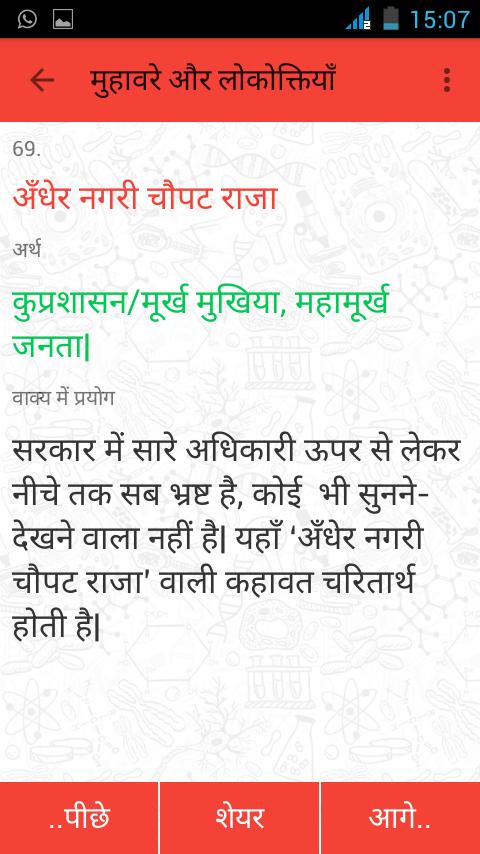 15:07
मुहावरे और लोकोक्तियाँ
69.
अँधेर नगरी चौपट राजा
अर्थ
कुप्रशासन/मूर्ख मुखिया, महामूर्ख
जनता|
वाक्य में प्रयोग
सरकार में सारे अधिकारी ऊपर से लेकर
नीचे तक सब भ्रष्ट है, कोई  भी सुनने-
देखने वाला नहीं है| यहाँ ‘अँधेर नगरी
चौपट राजा’ वाली कहावत चरितार्थ
होती है|
..पीछे
शेयर
आगे..